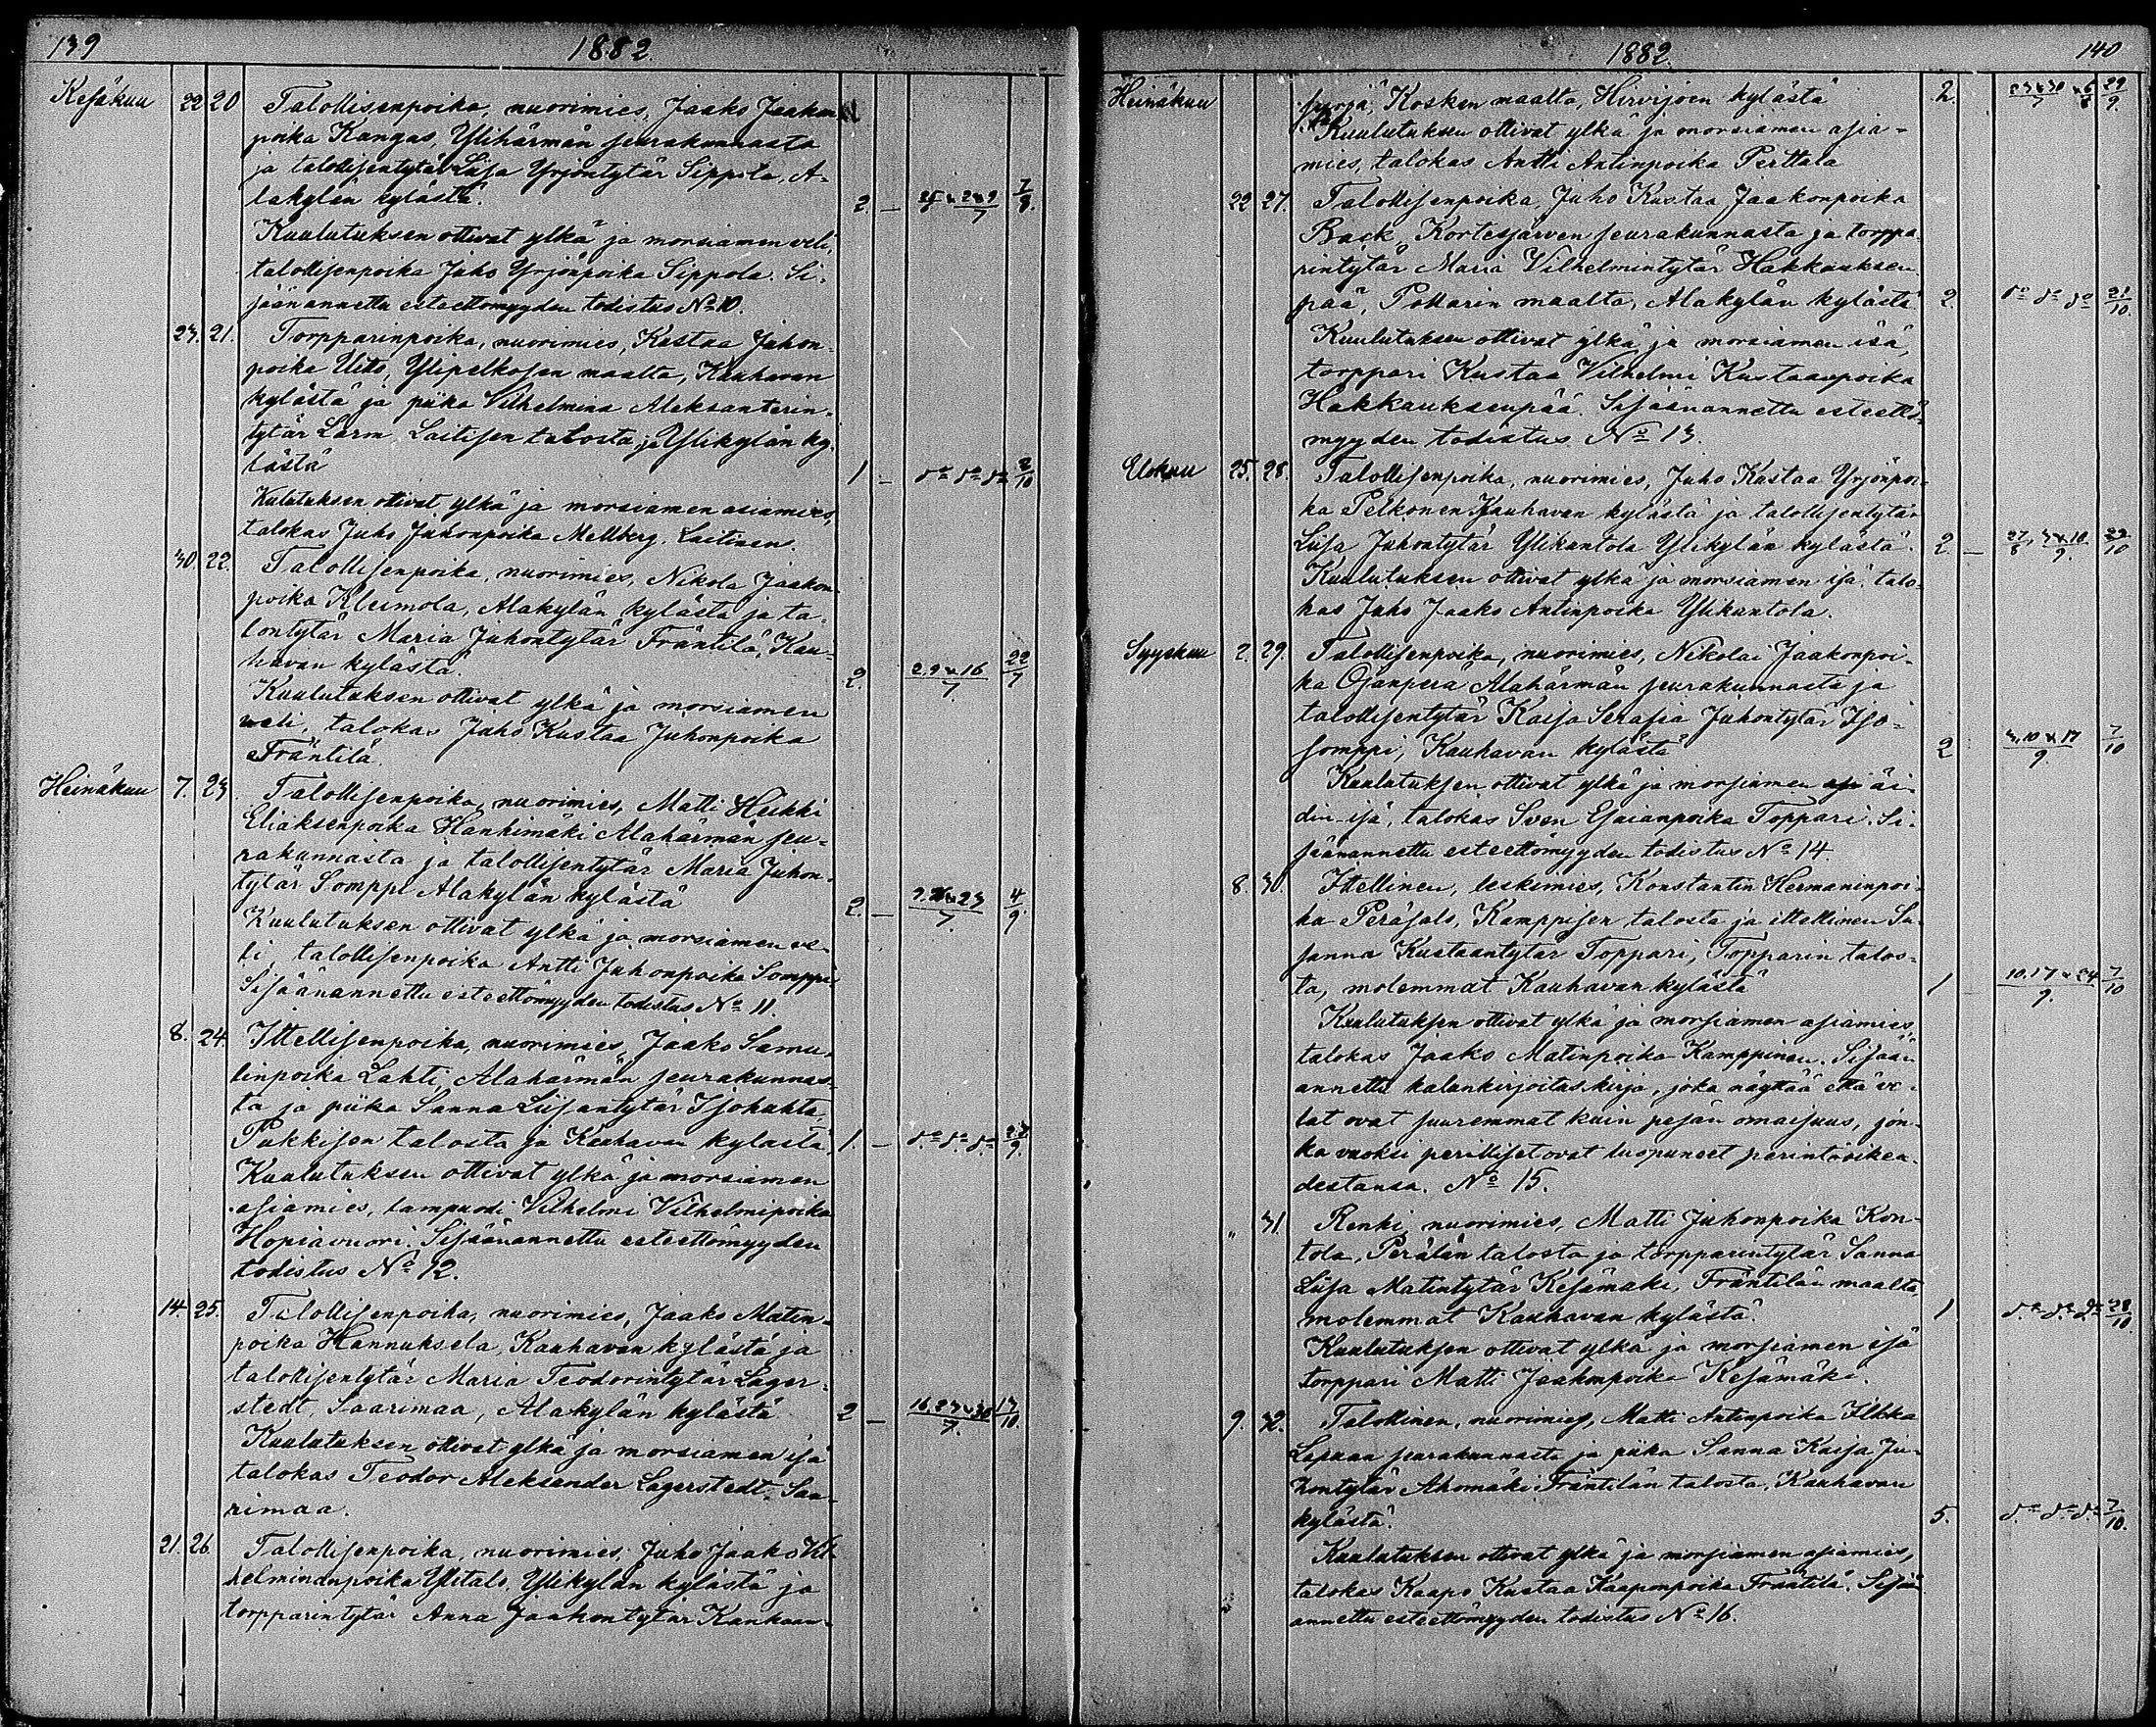 139 1882.
Kesäkuu 22 20 Talollisenpoika, nuorimies, Jaako Jaakon
poika Kangas, Ylihärmän seurakunnasta
ja talollisentytär Liisa Yrjöntytär Sippola, A-
lakylän kylästä. 2. — 25/6 2 & 9/7 7/8.
Kuulutuksen ottivat ylkä ja morsiamen veli,
talollisenpoika Juho Yrjönpoika Sippola. Si-
jäänannettu esteettömyyden todistus No 10.
23. 21. Torpparinpoika, nuorimies, Kustaa Juhon-
poika Uito, Ylipelkosen maalta, Kauhavan
kylästä ja piika Vilhelmina Aleksanterin-
tytär Larm, Laitisen talosta, ja Ylikylän ky-
lästä 1 — do do do 2/10
Kulutuksen ottivat ylkä ja morsiamen asiamies,
talokas Juho Juhonpoika Mellberg. Laitinen.
30. 22. Talollisenpoika, nuorimies, Nikola Jaakon-
poika Kleimola, Alakylän kylästä ja ta-
lontytär Maria Juhontytär Fräntilä, Kau-
havan kylästä. 2. 2,9 & 16/7. 22/7
Kuulutuksen ottivat ylkä ja morsiamen
veli, talokas Juho Kustaa Juhonpoika
Fräntilä.
Heinäkuu 7. 23. Talollisenpoika, nuorimies, Matti Heikki
Eliaksenpoika Hanhimäki Alahärmän seu-
rakunnasta ja talollisentytär Maria Juhon-
tytär Somppi Alakylän kylästä 2. — 9.16 & 23/7. 4/9.
Kuulutuksen ottivat ylkä ja morsiamen ve-
li, talollisenpoika Antti Juhonpoika Somppi.
Sisäänannettu esteettömyyden todistus No 11.
8. 24. Ittellisenpoika, nuorimies, Jaako Samu-
linpoika Lahti, Alahärmän seurakunnas-
ta ja piika Sanna Liisantytär Isohahta,
Pukkisen talosta ja Kauhavan kylästä, 1. — do. do. do. 23/9.
Kuulutuksen ottivat ylkä ja morsiamen
asiamies, lampuodi Vilhelmi Vilhelminpoika
Hopiavuori. Sisäänannettu esteettömyyden
todistus No 12.
14. 25. Talollisenpoika, nuorimies, Jaako Matin-
poika Hannuksela, Kauhavan kylästä ja
talollisentytär Maria Teodorintytär Lager-
stedt, Saarimaa, Alakylän kylästä 2 — 16.23 & 30/7. 13/10.
Kuulutuksen ottivat ylkä ja morsiamen isä
talokas Teodor Aleksander Lagerstedt-Saa-
rimaa.
21. 26. Talollisenpoika, nuorimies, Juho Jaako Vil-
helminanpoika Ylitalo, Ylikylän kylästä ja
torpparintytär Anna Jaakontytär Kankaan-
1882. 140
Heinäkuu Kosken maalta, Hirvijoen kylästä 2. 23 & 30/7 & 6/8 29/9.
Kuulutuksen ottivat ylkä ja morsiamen asia-
mies, talokas Antti Antinpoika Perttala
22 27. Talollisenpoika, Juho Kustaa Jaakonpoika
Back, Kortesjärven seurakunnasta ja torppa-
rintytär Maria Vilhelmintytär Hakkauksen-
pää, Pottarin maalta, Alakylän kylästä 2. do do do 21/10.
Kuulutuksen ottivat ylkä ja morsiamen isä,
torppari Kustaa Vilhelmi Kustaanpoika
Hakkauksenpää. Sisäänannettu esteettö-
myyden todistus No 13.
Elokuu 25. 28. Talollisenpoika, nuorimies, Juho Kustaa Yrjönpoi-
ka Pelkonen Kauhavan kylästä ja talollisentytär
Liisa Juhontytär Ylikantola Ylikylän kylästä. 2. — 27/8 3 & 10/9. 22/10
Kuulutuksen ottivat ylkä ja morsiamen isä, talo-
kas Juho Jaako Antinpoika Ylikantola.
Syyskuu 2. 29. Talollisenpoika, nuorimies, Nikolai Jaakonpoi-
ka Ojanperä Alahärmän seurakunnasta ja
talollisentytär Kaisa Serafia Juhontytär Iso-
somppi, Kauhavan kylästä 2 3,10 & 17/9. 7/10
Kuulutuksen ottivat ylkä ja morsiamen äi-
din-isä, talokas Sven Esaianpoika Toppari. Si-
säänannettu esteettömyyden todistus No 14.
8. 30. Ittellinen, leskimies, Konstantin Hermaninpoi-
ka Peräsalo, Kamppisen talosta ja ittellinen Su-
sanna Kustaantytär Toppari, Topparin talos-
ta, molemmat Kauhavan kylästä 1 — 10.17 & 24/9. 7/10
Kuulutuksen ottivat ylkä ja morsiamen asiamies,
talokas Jaako Matinpoika Kamppinen. Sisään
annettu kalunkirjoituskirja, joka näyttää että ve-
lat ovat suuremmat kuin pesän omaisuus, jon-
ka vuoksi perilliset ovat luopuneet perintöoikeu-
destansa. No 15.
" 31. Renki, nuorimies, Matti Juhonpoika Kon-
tola, Perälän talosta ja torpparintytär Sanna
Liisa Matintytär Kesämäki, Fräntilän maalta,
molemmat Kauhavan kylästä. 1 do. do. do. 28/10.
Kuulutuksen ottivat ylkä ja morsiamen isä
torppari Matti Jaakonpoika Kesämäki.
9. 32. Talollinen, nuorimies, Matti Antinpoika Ilkka
Lapuan seurakunnasta ja piika Sanna Kaisa Ju-
hontytär Ahomäki Fräntilän talosta, Kauhavan
kylästä. 5. do do do 7/10.
Kuulutuksen ottivat ylkä ja morsiamen asiamies,
talokas Kaapo Kustaa Kaaponpoika Fräntilä. Sisään
annettu esteettömyyden todistus No 16.